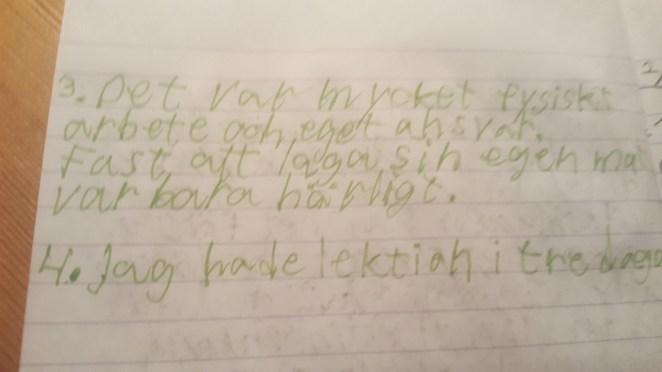 3. Det var mycket fysiskt
arbete och eget ansvar.
Fast att laga sin egen
var bara härligt.
4. Jag hade lektion i tre